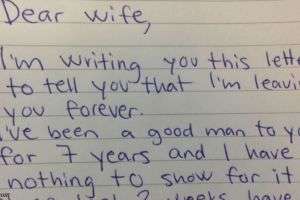 Dear wife,
I'm writing you this
to tell you that I'm
you forever.
I've been a good man to
for 7 years and I have
nothing to show for it
2 weeks have